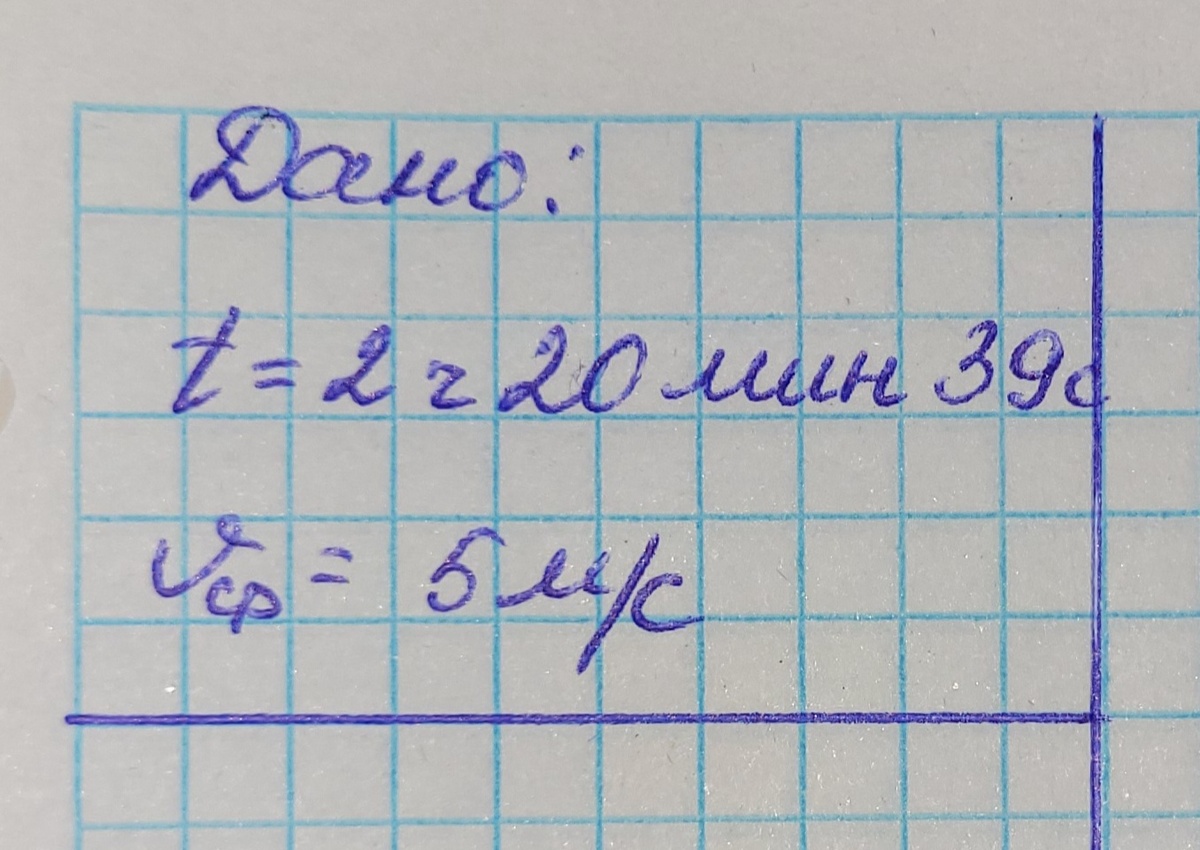 Дано:
t = 2 ч 20 мин 39с
υср = 5 м/с